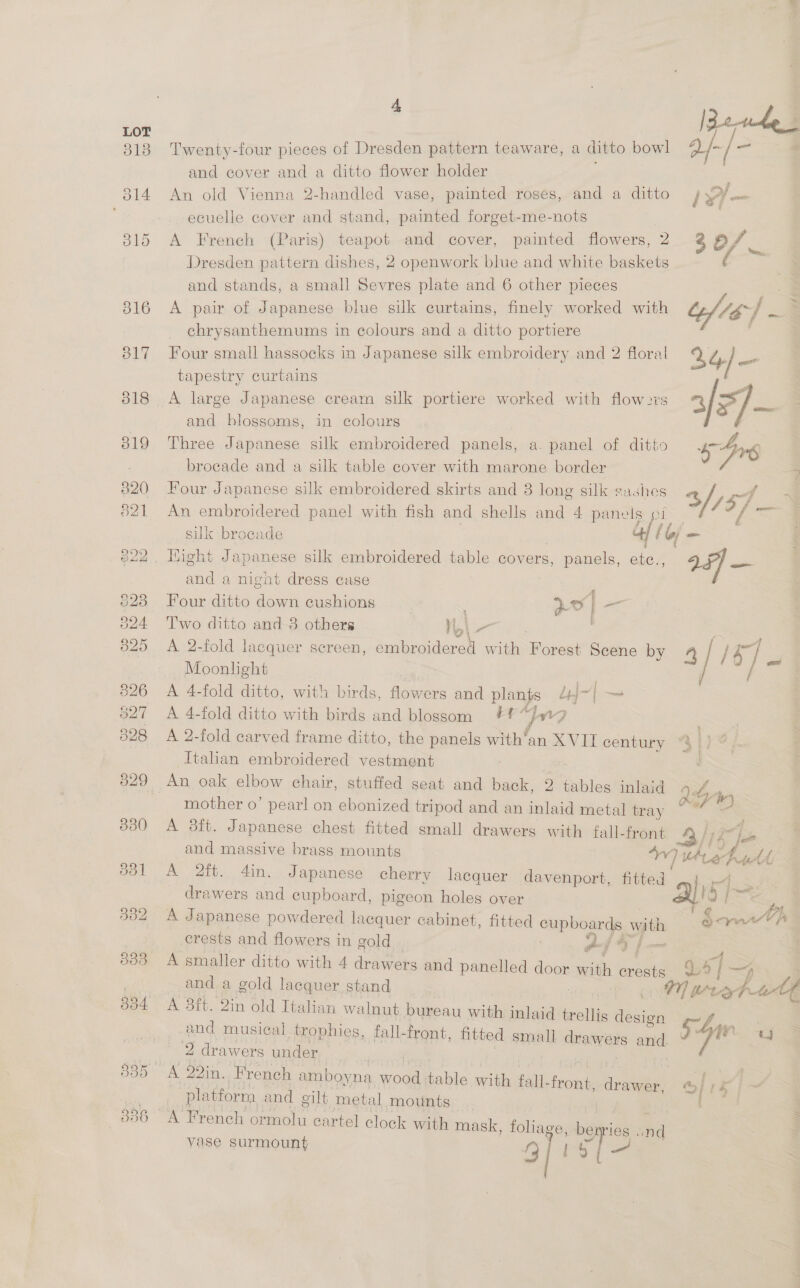 4
LOT
313 Twenty-four pieces of Dresden pattern teaware, a ditto bowl 2/-/-
and cover and a ditto flower holder
314 An old Vienna 2-handled vase, painted roses, and a ditto
ecuelle cover and stand, painted forget-me-nots
315 A French (Paris) teapot and cover, painted flowers, 2 30/-
Dresden pattern dishes, 2 openwork blue and white baskets
and stands, a small Sevres plate and 6 other pieces
316 A pair of Japanese blue silk curtains, finely worked with
chrysanthemums in colours and a ditto portiere
317 Four small hassocks in Japanese silk embroidery and 2 floral 34/-
tapestry curtains
318 A large Japanese cream silk portiere worked with flowers
and blossoms, in colours
319 Three Japanese silk embroidered panels, a panel of ditto
brocade and a silk table cover with marone border
320 Four Japanese silk embroidered skirts and 3 long silk sashes 3/15/-
321 An embroidered panel with fish and shells and 4 panels pi
silk brocade
322 Eight Japanese silk embroidered table covers, panels, etc.,
and a night dress case
323 Four ditto down cushions 20/-
324 Two ditto and 3 others
325 A 2-fold lacquer screen, embroidered with Forest Scene by
Moonlight
326 A 4-fold ditto, with birds, flowers and plants
327 A 4-fold ditto with birds and blossom
328 A 2-fold carved frame ditto, the panels with an XVII century
Italian embroidered vestment
329 An oak elbow chair, stuffed seat and back, 2 tables inlaid
mother o' pearl on ebonized tripod and an inlaid metal tray
330 A 3ft. Japanese chest fitted small drawers with fall-front
and massive brass mounts
331 A 2ft. 4in. Japanese cherry lacquer davenport, fitted
drawers and cupboard, pigeon holes over
332 A Japanese powdered lacquer cabinet, fitted cupboards with
crests and flowers in gold
333 A smaller ditto with 4 drawers and panelled door with crests
and a gold lacquer stand
334 A 3ft. 2in old Italian walnut bureau with inlaid trellis design
and musical trophies, fall-front, fitted small drawers and
2 drawers under
335 A 22in. French amboyna wood table with fall-front, drawer,
platform and gilt metal mounts
336 A French ormolu cartel clock with mask, foliage, berries and
vase surmount 3/15/-